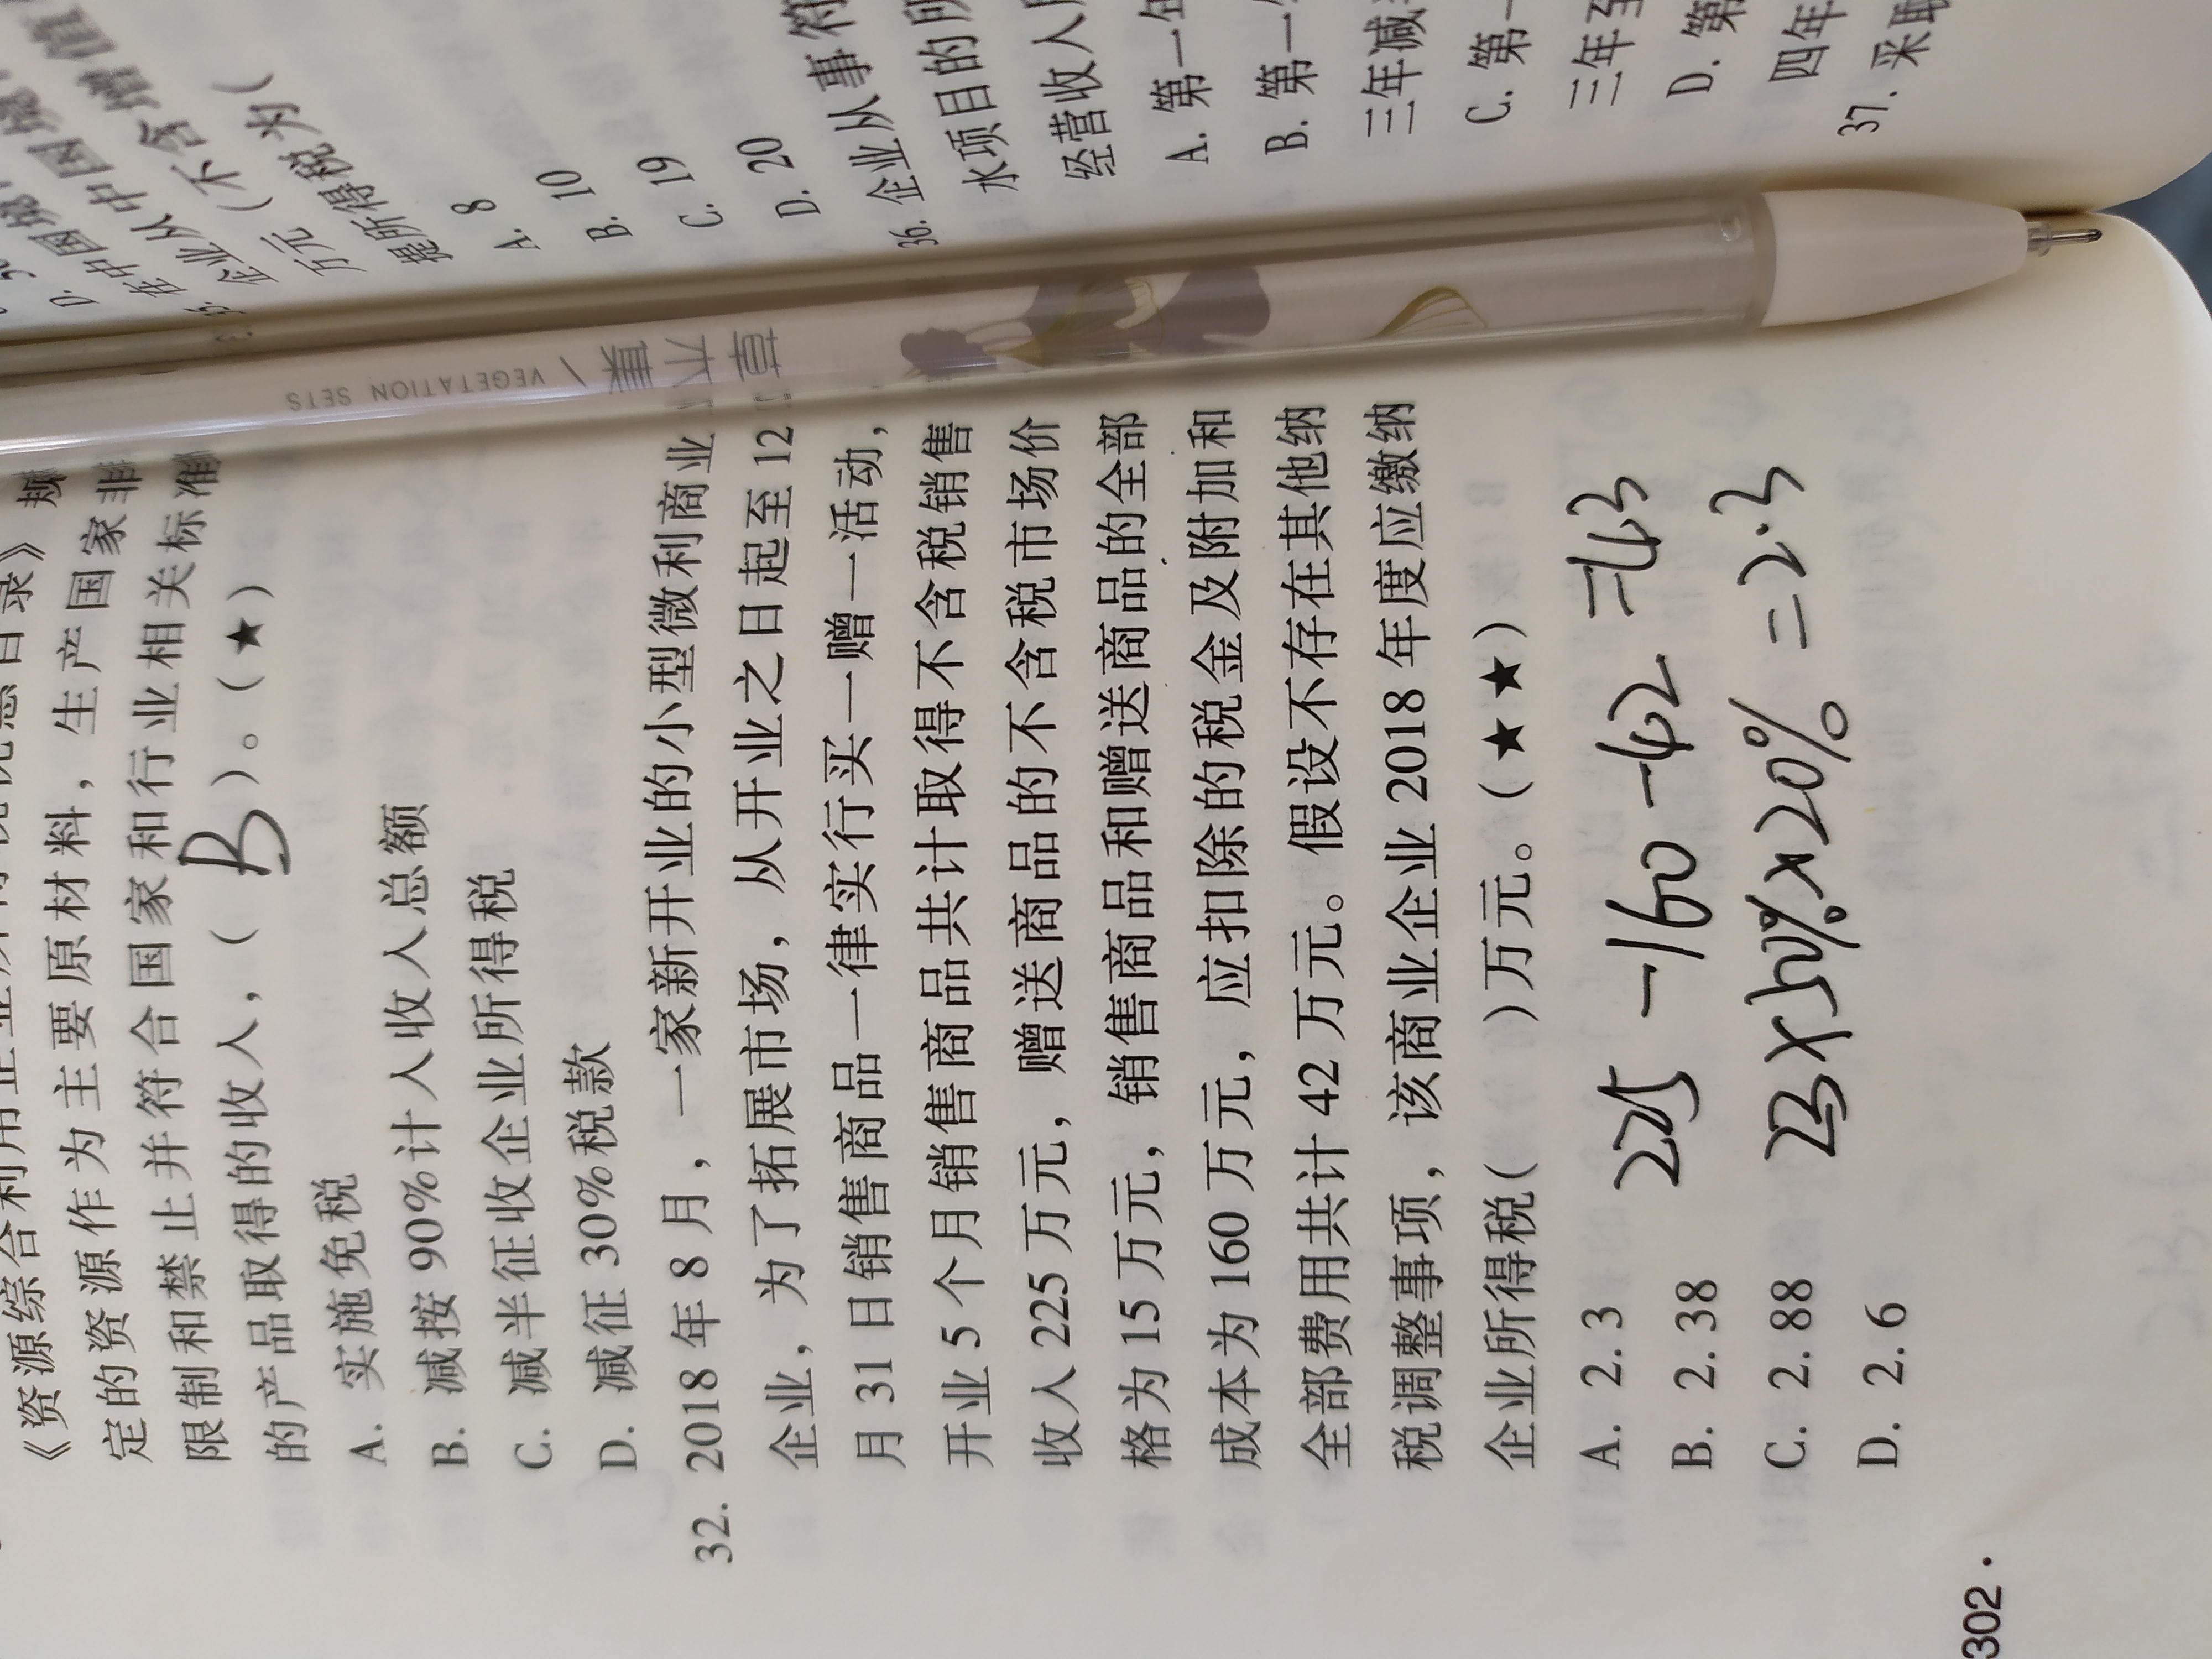 录》 规
定的资源作为主要原材料，生产国家非
限制和禁止并符合国家和行业相关标准
的产品取得的收入，（ B ）。（★）
A. 实施免税
B. 减按 90%计入收入总额
C. 减半征收企业所得税
D. 减征 30%税款
32. 2018 年 8 月，一家新开业的小型微利商业
企业，为了拓展市场，从开业之日起至 12
月 31 日销售商品一律实行买一赠一活动，
开业 5 个月销售商品共计取得不含税销售
收入 225 万元，赠送商品的不含税市场价
格为 15 万元，销售商品和赠送商品的全部
成本为 160 万元，应扣除的税金及附加和
全部费用共计 42 万元。假设不存在其他纳
税调整事项，该商业企业 2018 年度应缴纳
企业所得税（ ）万元。（★★）
A. 2.3
B. 2.38
C. 2.88
D. 2.6
225 -160 -42 =23
23×50%×20% =2.3
302 ·
草木集 / VEGETATION SETS
D. 中国境
企业从中国
万元（不含增值
提所得税为（
A. 8
B. 10
C. 19
D. 20
36. 企业从事符
水项目的所
经营收入
A. 第一年
B. 第一
三年减
C. 第一
三年至
D. 第
四年
37. 采取